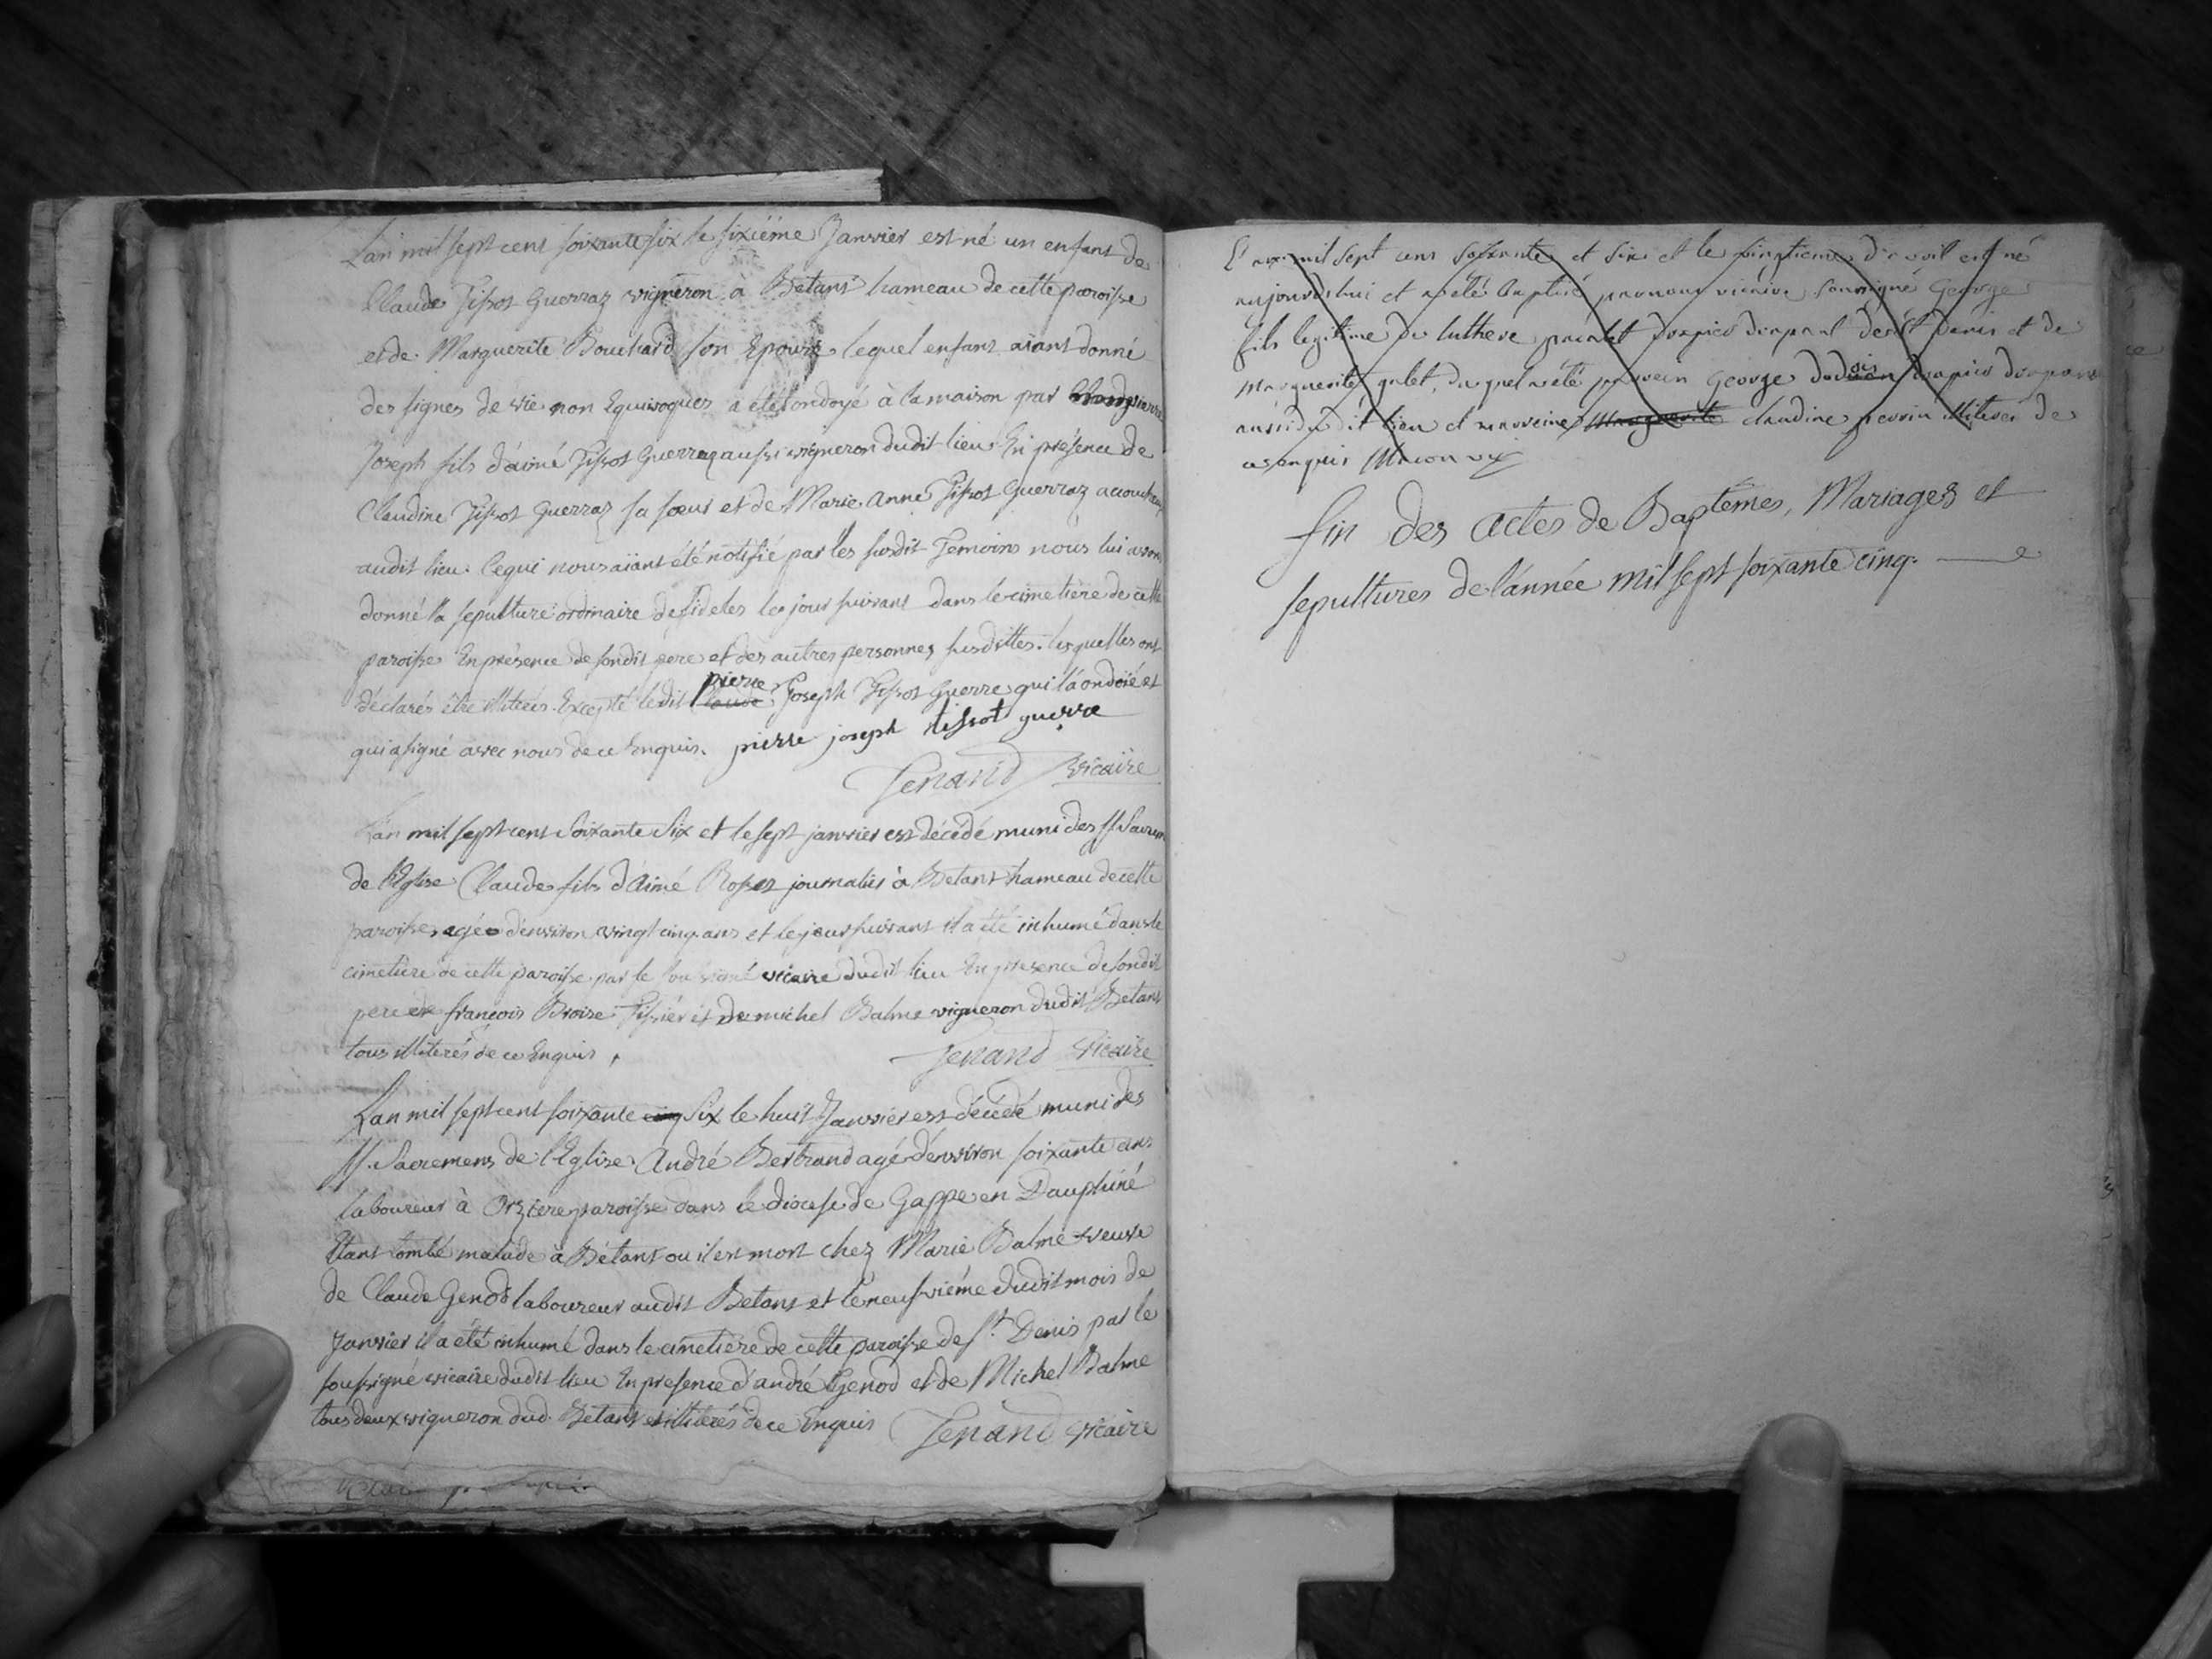 L'an mil sept cent soixante six le sixiéme Janvier est né un enfant de
Claude Tissot Guerraz vigneron à Betant hameau de cette paroisse
et de Marguerite Bouchard son Epouse lequel enfant aiant donné
des signes de vie non Equivoques a été ondoyé à la maison par
Joseph fils d'aimé Tissot Guerraz aussi vigneron dudit lieu En présence de
Claudine Tissot Guerraz sa soeur et de Marie Anne Tissot Guerraz
audit lieu. Ce qui nous aïant été notifié par les susdit Temoins nous lui avons
donné la sepulture ordinaire de fideles le jour suivant dans le cimetière de cette
paroisse En présence de sondit pere et des autres personnes susdittes. lesquelles ont
déclarés être illiterés Excepté ledit pierre Joseph Tissot Guerre qui l'a ondoié et
qui a signé avec nous de ce Enquis. pierre joseph tissot guerre
Tenand vicaire
L'an mil sept cent Soixante Six et le sept janvier est décédé muni des SS. Sacrem
de l'Eglise Claude fils d'Aimé Rosset journalier à Betant hameau de cette
paroisse agé d'environ vingt cinq ans et le jour suivant il a été inhumé dans le
cimetière de cette paroisse par le soussigné vicaire dudit lieu En presence de sondit
pere de françois Broise Tissier et de michel Balme vigneron dudit Betant
tous illiterés de ce Enquis.
Tenand vicaire
L'an mil sept cent soixante cinq Six le huit Janvier est décédé muni des
SS. Sacremens de l'Eglise André Bertrand agé d'environ soixante ans
laboureur à Orziere paroisse dans le diocese de Gappe en Dauphiné
Etant tombé malade à Bétant ou il est mort chez Marie Balme veuve
de Claude Genod laboureur audit Betant et le neufviéme dudit mois de
Janvier il a été inhumé dans le cimetiere de cette paroisse de St. Denis par le
soussigné vicaire dudit lieu En presence d'andré Genod et de Michel Balme
tous deux vigneron dud. Betant et illiterés de ce Enquis
Tenand vicaire
L'an mil sept cens soixante et six et le d'avril est né
aujourdhui et a été baptisé par nous vicaire soussigné George
fils legitime de luthere drapier drapant de St Denis et de
Marguerite galet, duquel a été parrein George drapier drapant
aussi du dit lieu et marreine Marguerite claudine perrin illiteres de
ce enquis
fin des actes de Baptêmes, Mariages et
sepultures de l'année mil sept soixante cinq.